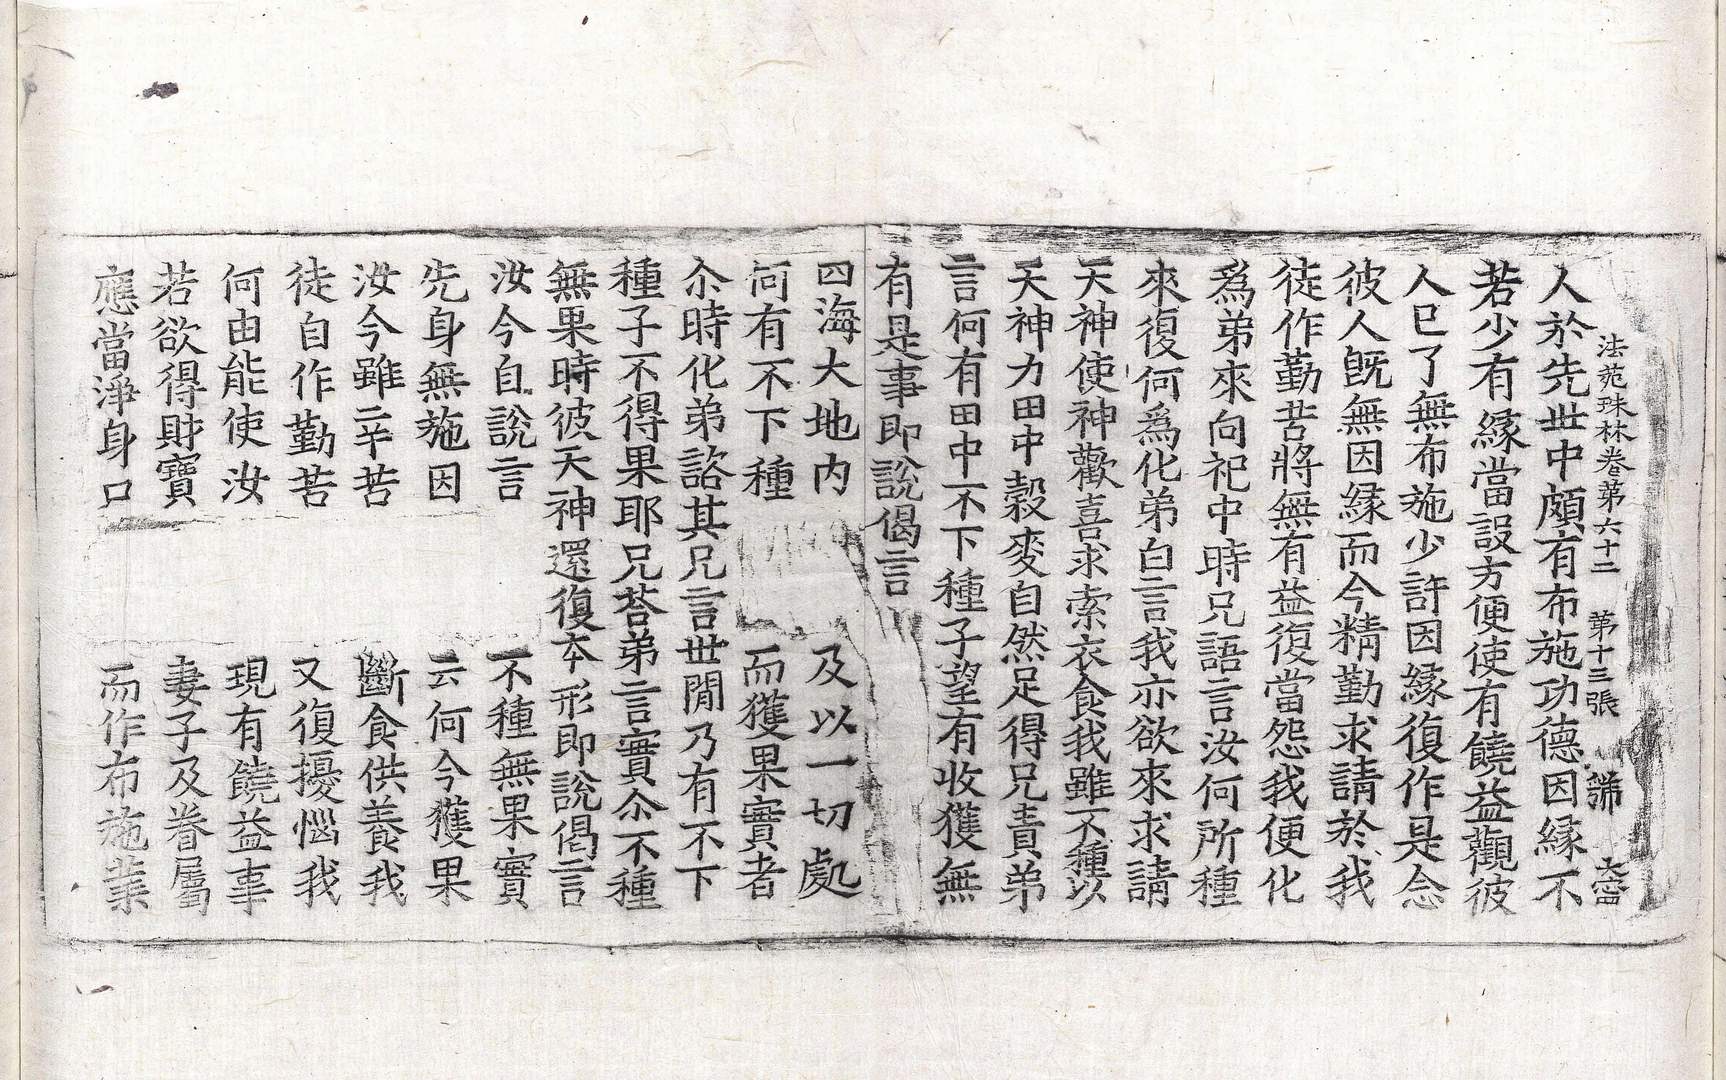 法苑珠林卷第六十二 第十三張
人於先世中頗有布施功德因緣不
若少有緣當設方便使有饒益觀彼
人已了無布施少許因緣復作是念
彼人旣無因緣而今精勤求請於我
徒作勤苦將無有益復當怨我便化
爲弟來向祀中時兄語言汝何所種
來復何爲化弟白言我亦欲來求請
天神使神歡喜求索衣食我雖不種以
天神力田中穀麥自然足得兄責弟
言何有田中不下種子望有收獲無
有是事即說偈言
四海大地內 及以一切處
何有不下種 而獲果實者
尒時化弟語其兄言世閒乃有不下
種子不得果耶兄荅弟言實尒不種
無果時彼天神還復本形即說偈言
汝今自說言 不種無果實
先身無施因 云何今獲果
汝今雖辛苦 斷食供養我
徒自作勤苦 又復擾惱我
何由能使汝 現有饒益事
若欲得財寶 妻子及眷屬
應當淨身口 而作布施業